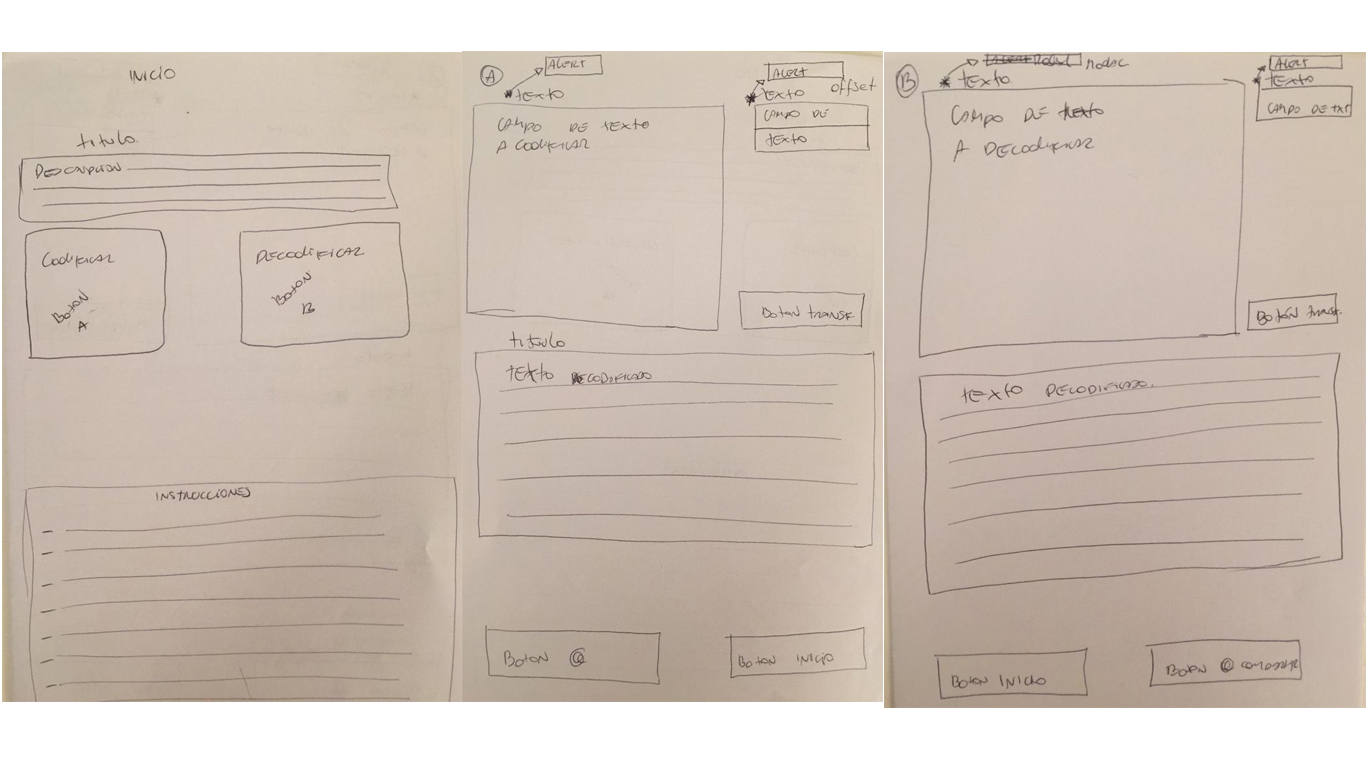 INICIO
titulo
DESCRIPCION
CODIFICAR
BOTON
A
DECODIFICAR
BOTON
B
INSTRUCCIONES
A
ALERT
* TEXTO
CAMPO DE TEXTO
A CODIFICAR
ALERT
* TEXTO offset
CAMPO DE
TEXTO
BOTON TRANSF.
titulo
TEXTO CODIFICADO
BOTON @
BOTON INICIO
B
* TEXTO
CAMPO DE TEXTO
A DECODIFICAR
ALERT
* TEXTO
CAMPO DE TXT
BOTÓN TRANSF.
TEXTO DECODIFICADO.
BOTON INICIO
BOTON @